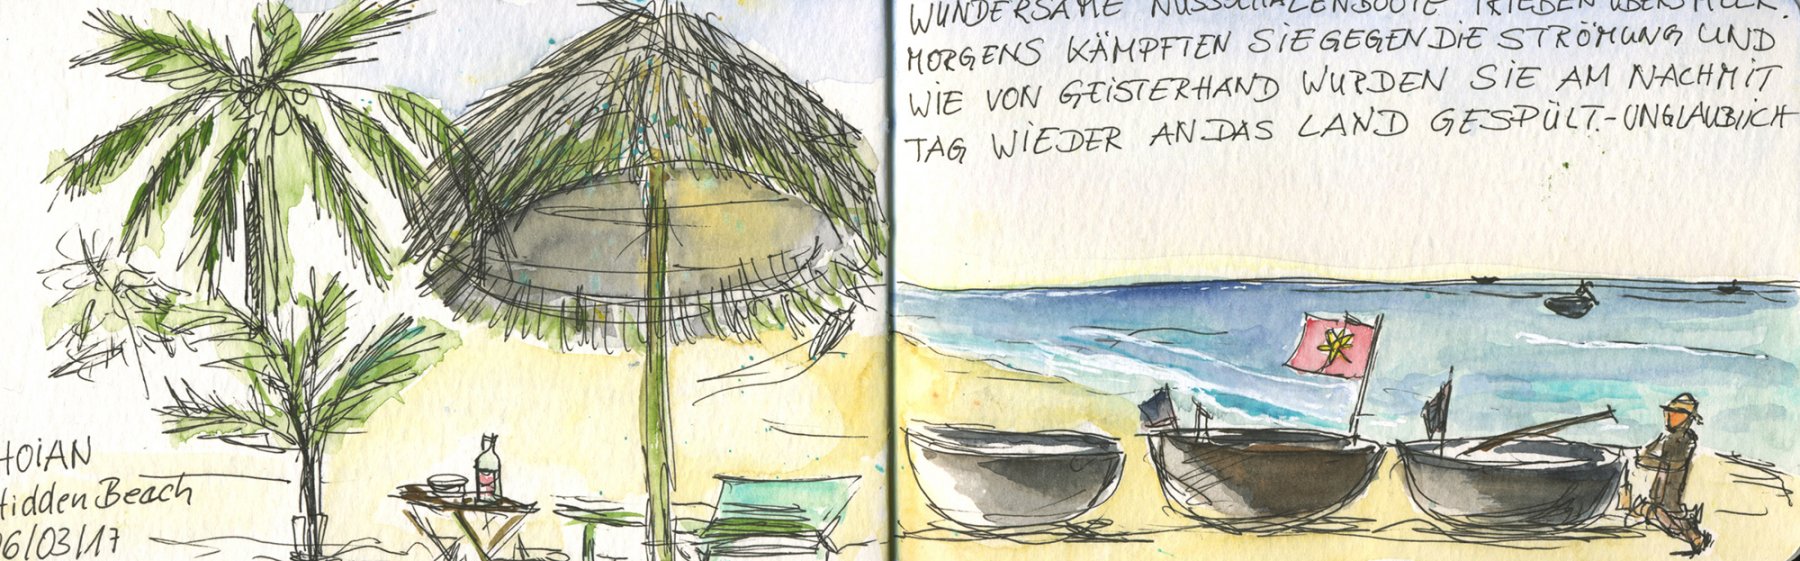 HOIAN
Hidden Beach
06/03/17
WUNDERSAME NUSSSCHALENBOOTE TRIEBEN ÜBERS MEER.
MORGENS KÄMPFTEN SIE GEGEN DIE STRÖMUNG UND
WIE VON GEISTERHAND WURDEN SIE AM NACHMIT
TAG WIEDER AN DAS LAND GESPÜLT.-UNGLAUBLICH